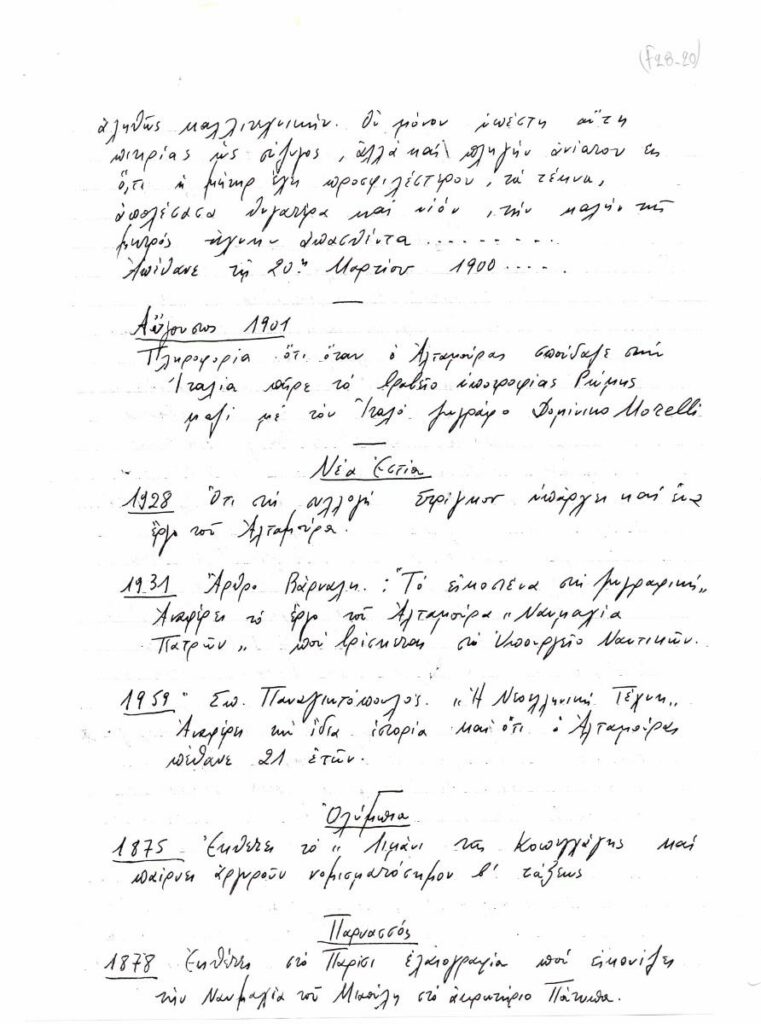 (F28-20)
ἀληθῶς καλλιτεχνικήν. Οὐ μόνον ὑπέστη αὕτη
πικρίας ὡς σύζυγος, ἀλλά καί πληγήν ἀνίατον εἰς
ὅ,τι ἡ μήτηρ ἔχει προσφιλέστερον, τά τέκνα,
ἀπολέσασα θυγατέρα καί υἱόν, τήν καλήν τῆς
μητρός τέχνην ἀσπασθέντα . . . . . . . . .
Ἀπέθανε τῇ 20ῃ Μαρτίου 1900 . . . . .
Αὔγουστος 1901
Πληροφορία ὅτι ὅταν ὁ Ἀλταμούρας σπούδαζε στήν
Ἰταλία πῆρε τό βραβεῖο ὑποτροφίας Ρώμης
μαζί μέ τόν Ἰταλό ζωγράφο Dominico Morelli
Νέα Ἑστία
1928 Ὅτι στή συλλογή Στρίγκου ὑπάρχει καί ἕνα
ἔργο τοῦ Ἀλταμούρα.
1931 Ἄρθρο Βάρναλη : "Τό εἰκοσιένα στή ζωγραφική"
Ἀναφέρει τό ἔργο τοῦ Ἀλταμούρα "Ναυμαχία
Πατρῶν" πού βρίσκεται στό Ὑπουργεῖο Ναυτικῶν.
1959 Σπ. Παναγιωτόπουλος. "Ἡ Νεοελληνική Τέχνη"
Ἀναφέρει τήν ἴδια ἱστορία καί ὅτι ὁ Ἀλταμούρας
πέθανε 21 ἐτῶν.
Ὀλύμπια
1875 Ἐκθέτει τό "Λιμάνι τῆς Κοπεγχάγης καί
παίρνει ἀργυροῦν νομισματόσημον β' τάξεως
Παρνασσός
1878 Ἐκθέτει στό Παρίσι ἐλαιογραφία πού εἰκονίζει
τήν Ναυμαχία τοῦ Μιαούλη στό ἀκρωτήριο Πάππα.